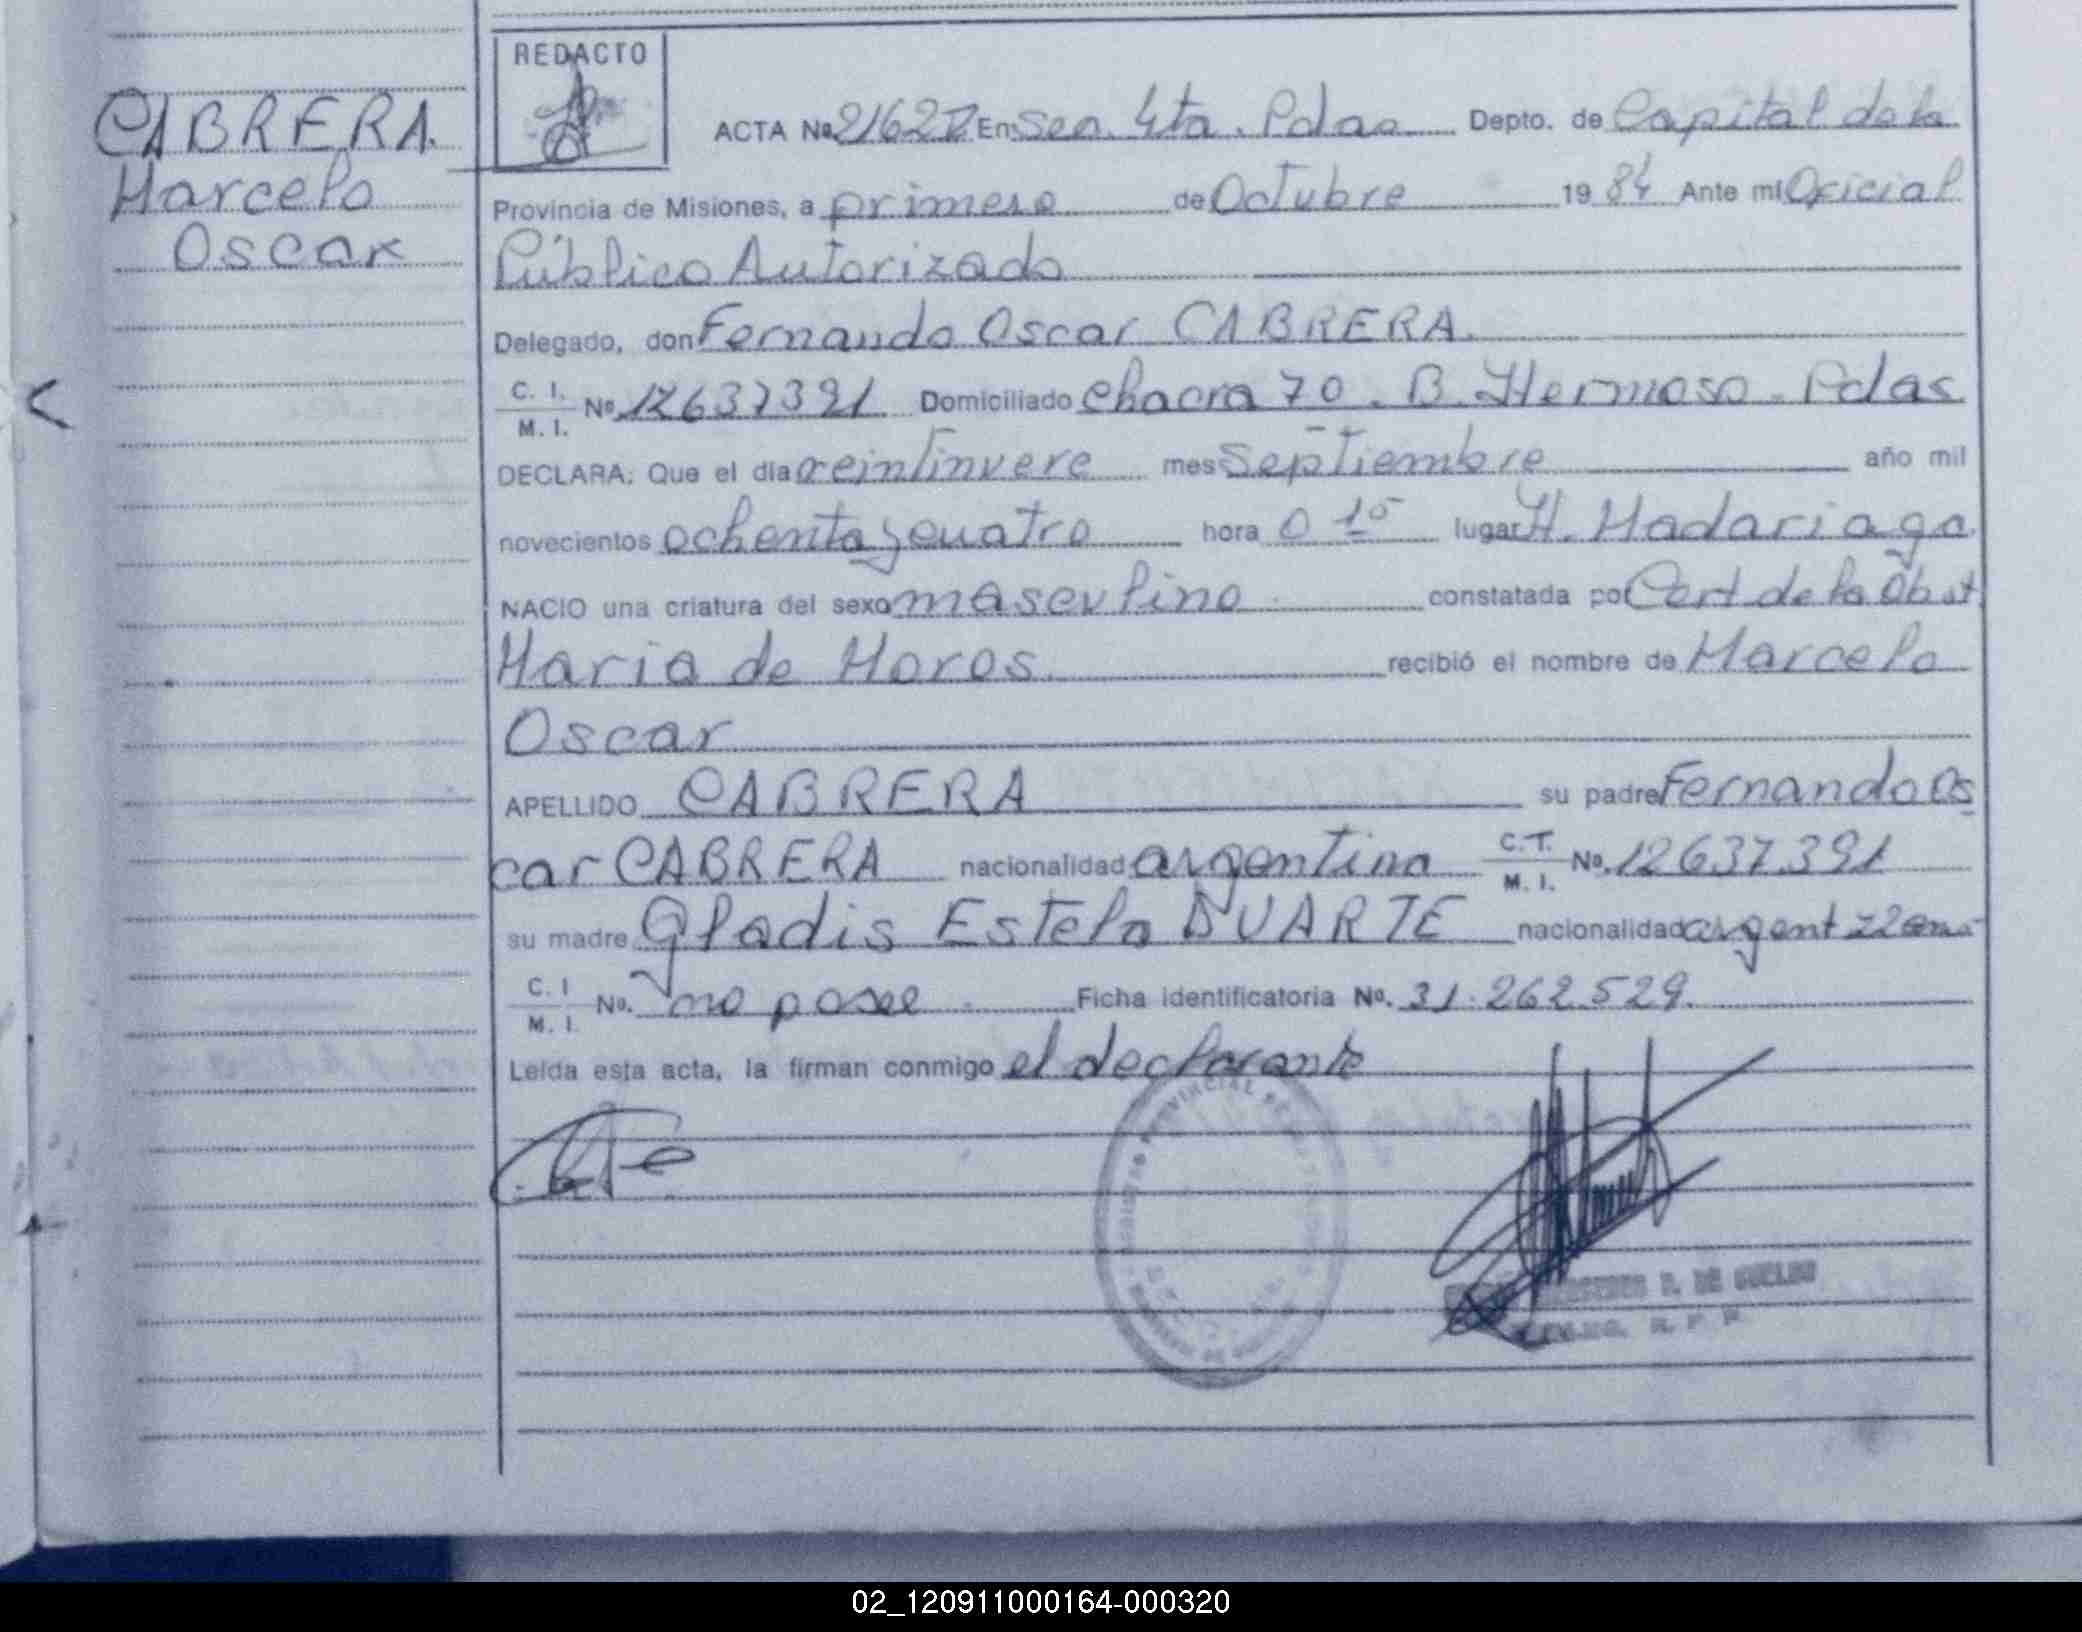 REDACTO
CABRERA.
Marcelo
Oscar
ACTA Nº 2162 En Sec. 4ta. Pdas Depto. de Capital de la
Provincia de Misiones, a primero de Octubre 19 84 Ante mi Oficial
Público Autorizado
Delegado, don Fernando Oscar CABRERA.
C. I. M. I. Nº 12637391 Domiciliado Chacra 70. B. Hermoso. Pdas
DECLARA: Que el dia veintinueve mes Septiembre año mil
novecientos ochenta y cuatro hora 0 10 lugar H. Madariaga.
NACIO una criatura del sexo masculino constatada por Cert de la Obst
Maria de Moros. recibió el nombre de Marcelo
Oscar
APELLIDO CABRERA su padre Fernando Os
car CABRERA nacionalidad argentina C.T. M. I. Nº. 12637.391
su madre Gladis Estela DUARTE nacionalidad argent 22
C. I M. I. Nº. no posee. Ficha identificatoria Nº. 31.262.529.
Leída esta acta, la firman conmigo el declarante
PROVINCIAL
DE SUELDO
R. P. P.
02_120911000164-000320